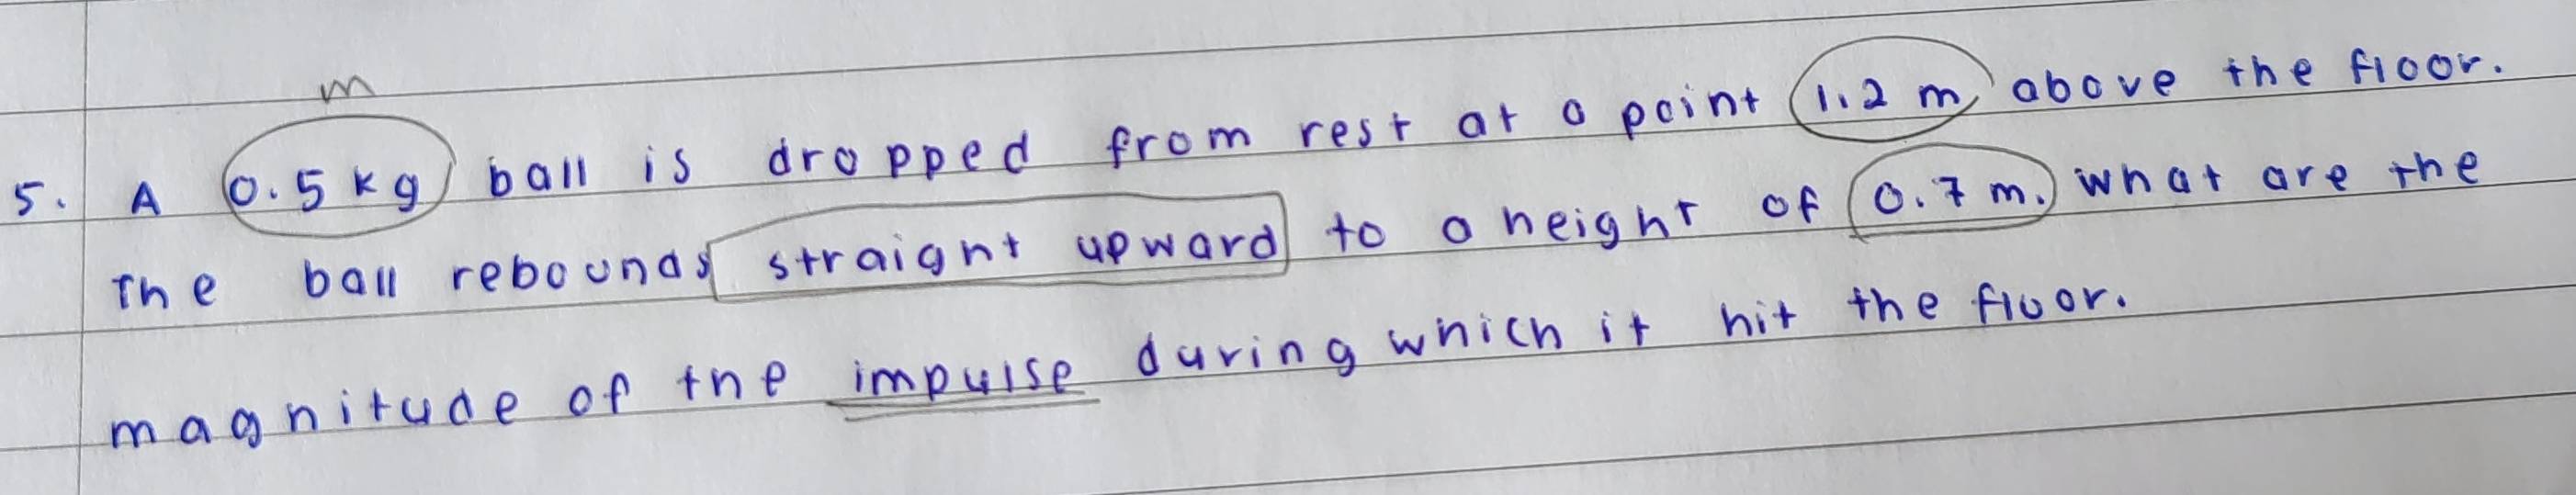 m
5. A 0.5 kg ball is dropped from rest at a point 1.2 m above the floor.
The ball rebounds straight upward to a height of 0.7 m. What are the
magnitude of the impulse during which it hit the floor.